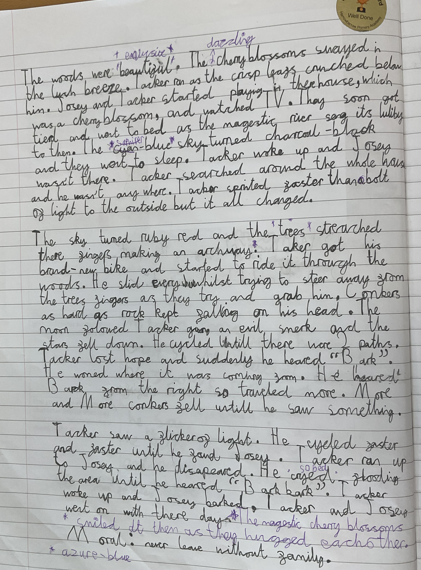 Well Done
* exclusive * dazzling
The woods were 'beautiful'. The cherryblossoms swayed in
the lush breeze. Tacker ran as the crisp leafs crunched below
him. Josey and Tacker started playing in there house, which
was a cherryblossom, and watched TV. They soon got
tierd and went to bed as the magestic river sang its lulby
to then. The cyan-blue sky turned charcoal-black
and they went to sleep. Tacker woke up and Josey
wasn't there. Tacker searched around the whole house
and he wasn't any where. Tacker sprinted faster than a bolt
of light to the outside but it all changed.
The sky turned ruby red and the 'trees' strearched
there fingers making an archway. Taker got his
brand-new bike and started to ride it through the
woods. He slid every whilst trying to steer away from
the trees fingers as they try and grab him. Conkers
as hard as rock kept falling on his head. The
moon folowed Tacker an evil smerk and the
stars fell down. He cycled Untill there were paths.
Tacker lost hope and suddenly he heared "Bark".
He woned where it was coming from. He 'heared'
Bark from the right so traveled more. More
and More conkers fell untill he saw something.
Tacker saw a flicker of light. He cycled faster
and faster until he found Josey. Tacker ran up
to Josey and he disapeared. He 'cryed' flooding
sobed
the area until he heared "Bark bark". Tacker
woke up and Josey barked. Tacker and Josey
went on with there day. * The magestic cherry blossoms
* smiled at them as they hugged eachother.
Moral: never leave without family.
* azure-blue